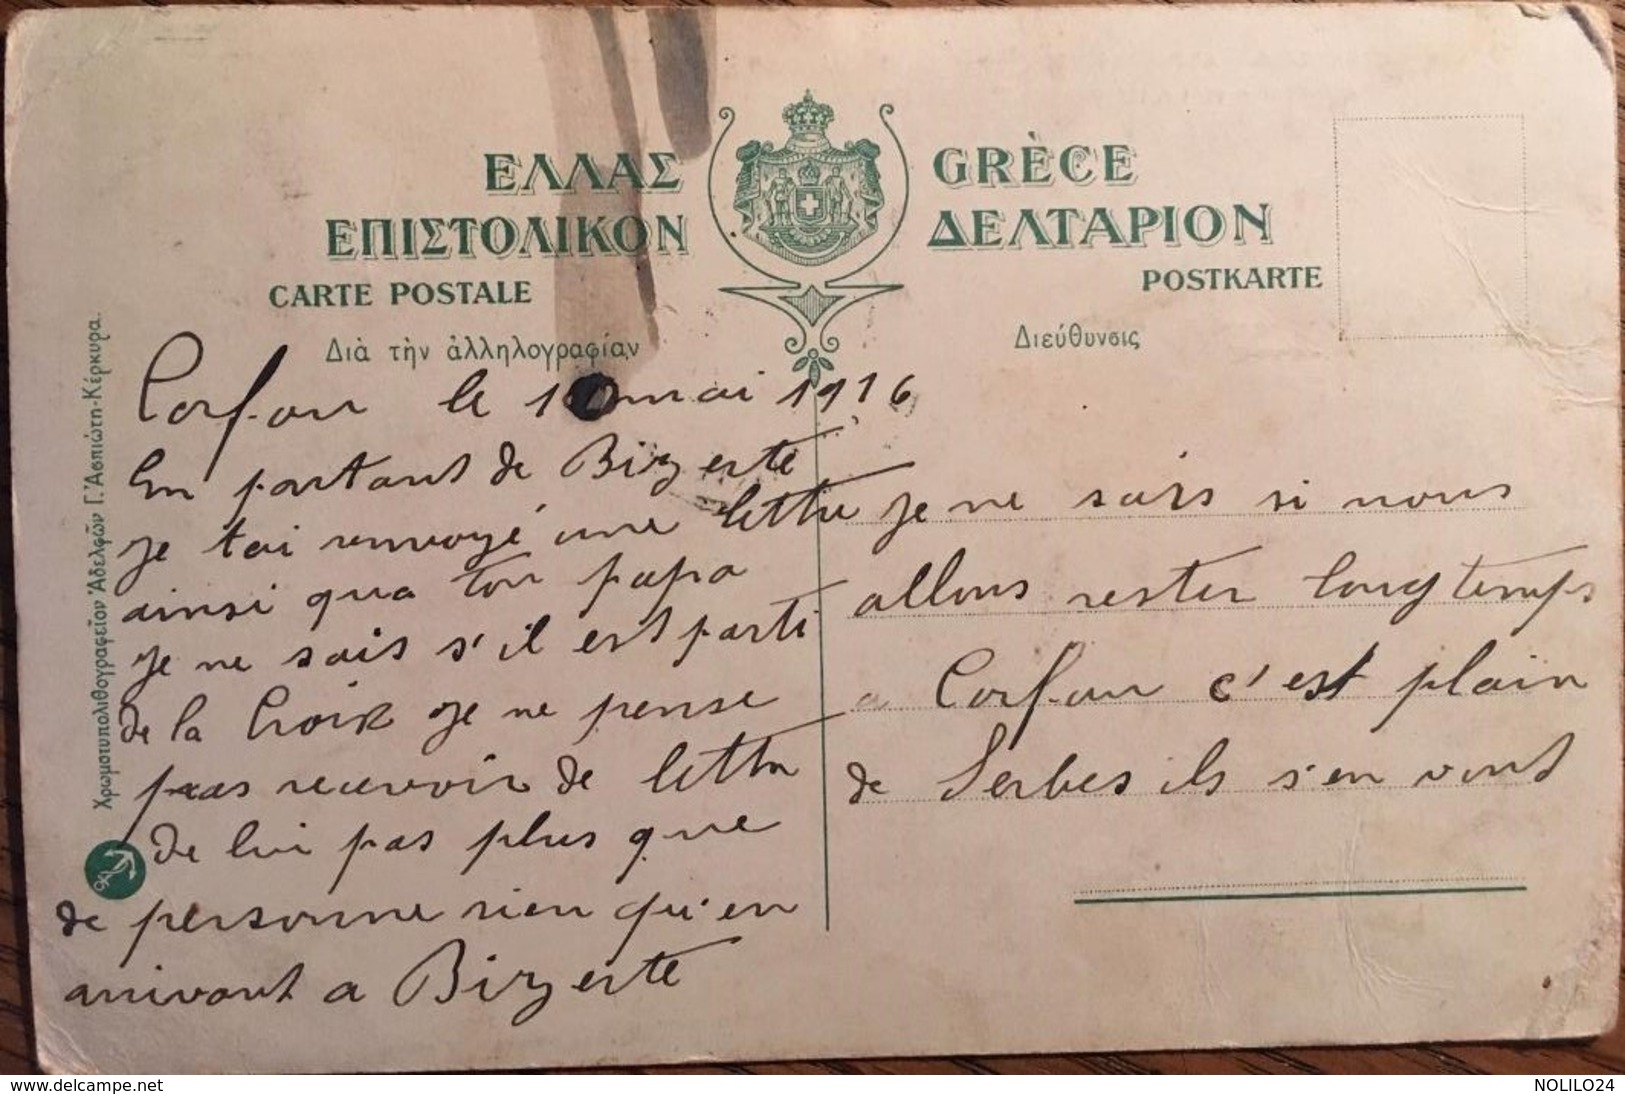 ΕΛΛΑΣ GRÈCE
ΕΠΙΣΤΟΛΙΚΟΝ ΔΕΛΤΑΡΙΟΝ
CARTE POSTALE POSTKARTE
Διὰ τὴν ἀλληλογραφίαν
Διεύθυνσις
Χρωμοτυπολιθογραφεῖον Ἀδελφῶν Γ. Ἀσπιώτη-Κέρκυρα.
Corfou le mai 1916
En partant de Bizerte
je tai renvoyé une lettre
ainsi qua ton papa
je ne sais s'il est parti
de la Croix je ne pense
pas recevoir de lettre
de lui pas plus que
de personne rien qu'en
arrivant a Bizerte
je ne sais si nous
allons rester longtemps
a Corfou c'est plain
de Serbes ils s'en vont
www.delcampe.net
NOLILO24